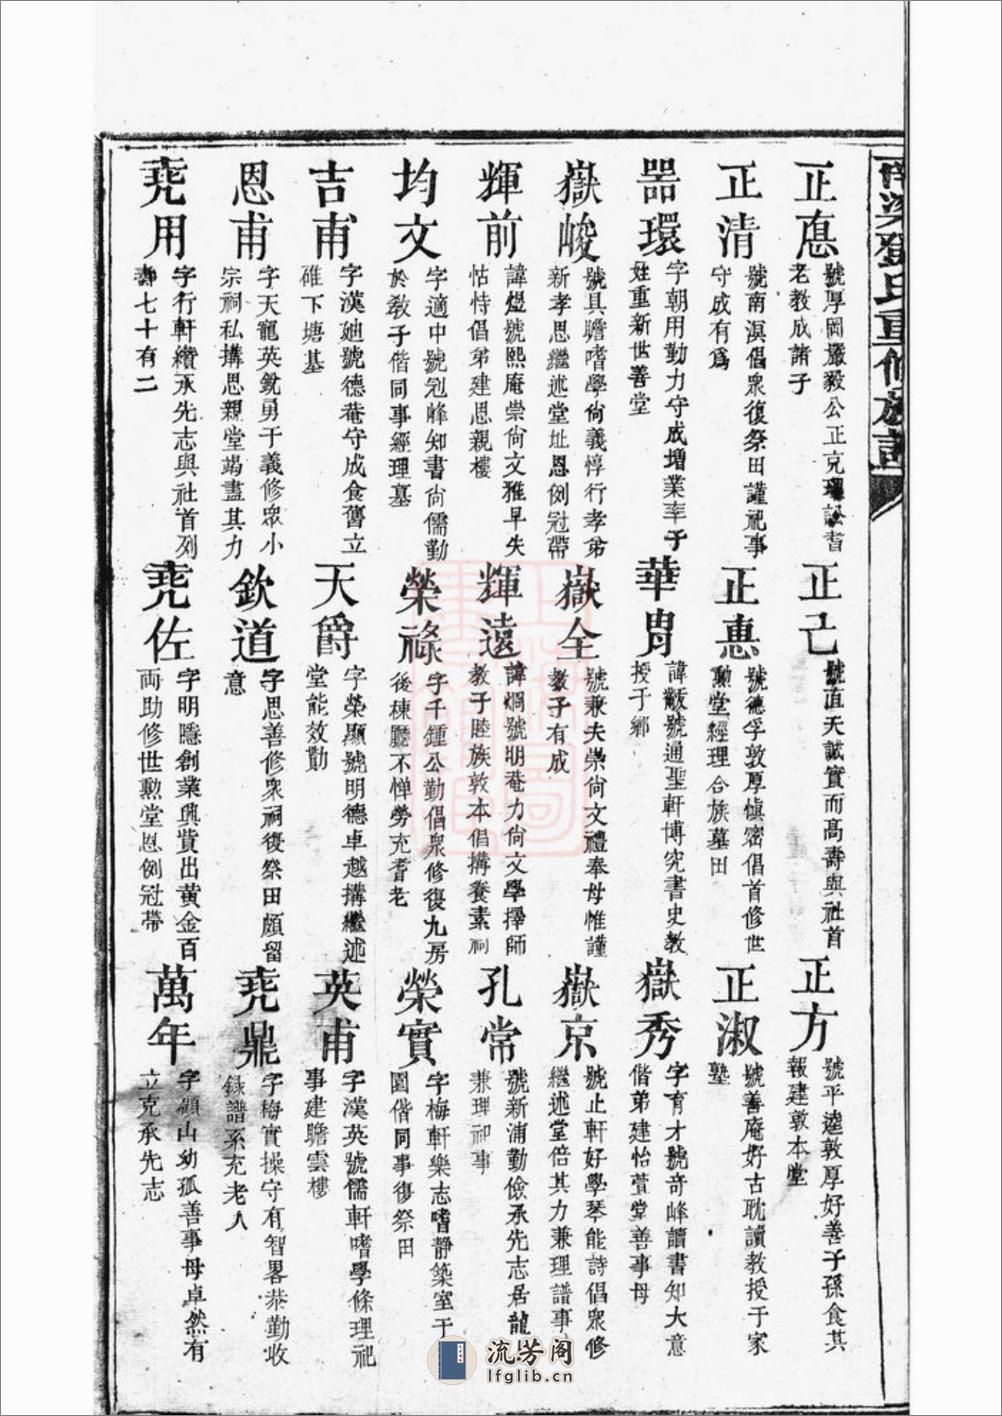 南梁鄧氏重修族譜
正悳
號厚岡嚴毅公正克理訟者
老教成諸子
正己
號直夫誠實而高壽與社首
正方
號平逵敦厚好善子孫食其
報建敦本堂
正清
號南溟倡衆復祭田謹祀事
守成有爲
正惠
號德孚敦厚慎密倡首修世
勳堂經理合族墓田
正淑
號善庵好古耽讀教授于家
塾
器環
字朝用勤力守成增業率子
姪重新世善堂
華胄
諱黻號通聖軒博究書史教
授于鄉
嶽秀
字育才號奇峰讀書知大意
偕弟建怡萱堂善事母
嶽峻
號具瞻嗜學尚義惇行孝弟
新孝思繼述堂址恩例冠帶
嶽全
號兼夫崇尚文禮奉母惟謹
教子有成
嶽京
號止軒好學琴能詩倡衆修
繼述堂倍其力兼理譜事
輝前
諱煜號熙庵崇尚文雅早失
怙恃倡弟建思親樓
輝遠
諱烱號明菴力尚文學擇師
教子睦族敦本倡搆養素祠
孔常
號新浦勤儉承先志居龍
兼理祀事
均文
字適中號冠峰知書尚儒勤
於教子偕同事經理墓
榮祿
字千鍾公勤倡衆修復九房
後棟廳不惮勞充耆老
榮實
字梅軒樂志嗜靜築室于
園偕同事復祭田
吉甫
字漢廸號德菴守成食舊立
碓下塘基
天爵
字榮顯號明德卓越搆繼述
堂能效勤
英甫
字漢英號儒軒嗜學條理祀
事建瞻雲樓
恩甫
字天寵英銳勇于義修衆小
宗祠私搆思親堂竭盡其力
欽道
字思善修衆祠復祭田頗留
意
堯鼎
字梅實操守有智畧恭勤收
録譜系充老人
堯用
字行軒纘承先志與社首列
壽七十有二
堯佐
字明隱創業興貲出黄金百
両助修世勳堂恩例冠帶
萬年
字碩山幼孤善事母卓然有
立克承先志
流芳阁
lfglib.cn